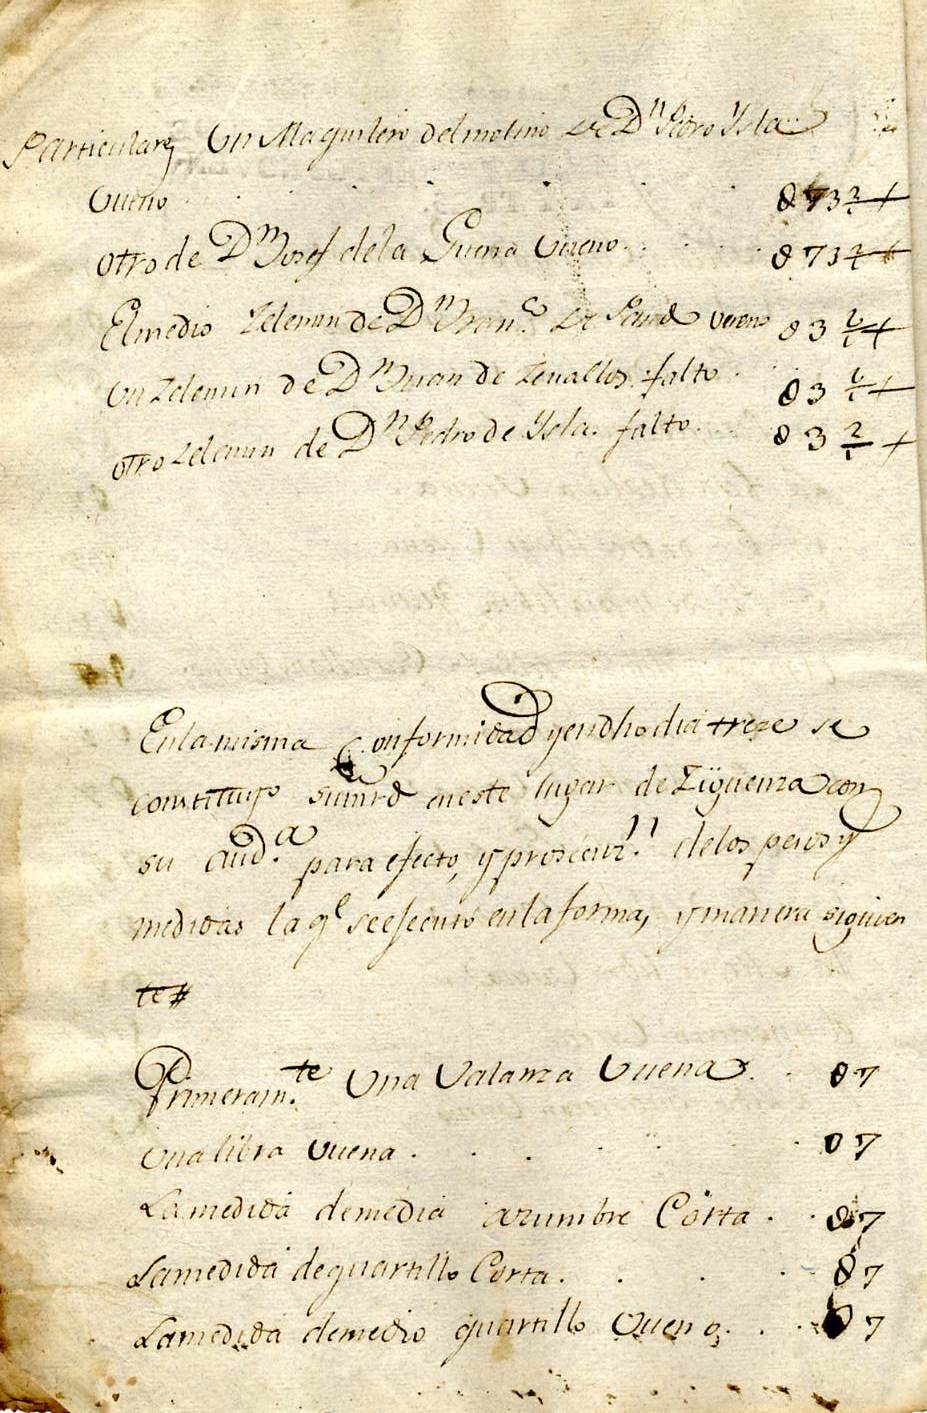 Particulares Un Maquilero del molino de Dn Pedro Ysla
Vueno . . . . . . . 8 7 3 2/1
Otro de Dn Josef de la Guerra Vueno . . . 8 7 3 2/1
El medio Zelemin de Dn Franco de Vueno 8 3
Un Zelemin de Dn Juan de Zevallos falto . . 8 3
otro Zelemin de Dn Pedro de Ysla. falto . . 8 3 2/1
En la misma Conformidad y en dho dia treze se
constituyo su mrd en este lugar de Zigüenza con
su Auda para efecto, y prosecuzn de los pesos y
medidas la ql se esecuto en la forma, y manera siguien
te #
Primeramte Una Valanza Vuena . . 8 7
Una libra Vuena . . . . . . . 0 7
La medida de media azumbre Corta . . 8 7
La medida de quartillo Corta . . . . 8 7
La medida de medio quartillo Vueno . . . 8 7